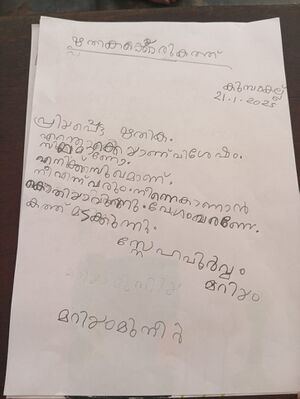 ഋതികക്കൊരു കത്ത്
21.1.2025
പ്രിയപ്പെട്ട ഋതിക.
എന്തൊക്കെയാണ് വിശേഷം.
സുഖമാണോ.
എനിക്ക് സുഖമാണ്.
നീ എന്ന് വരും. നിന്നെ കാണാൻ
കൊതിയാവുന്നു. വേഗം വരണേ.
കത്ത് മടക്കുന്നു.
സ്നേഹപൂർവ്വം
മറിയം
മറിയം മുനീർ